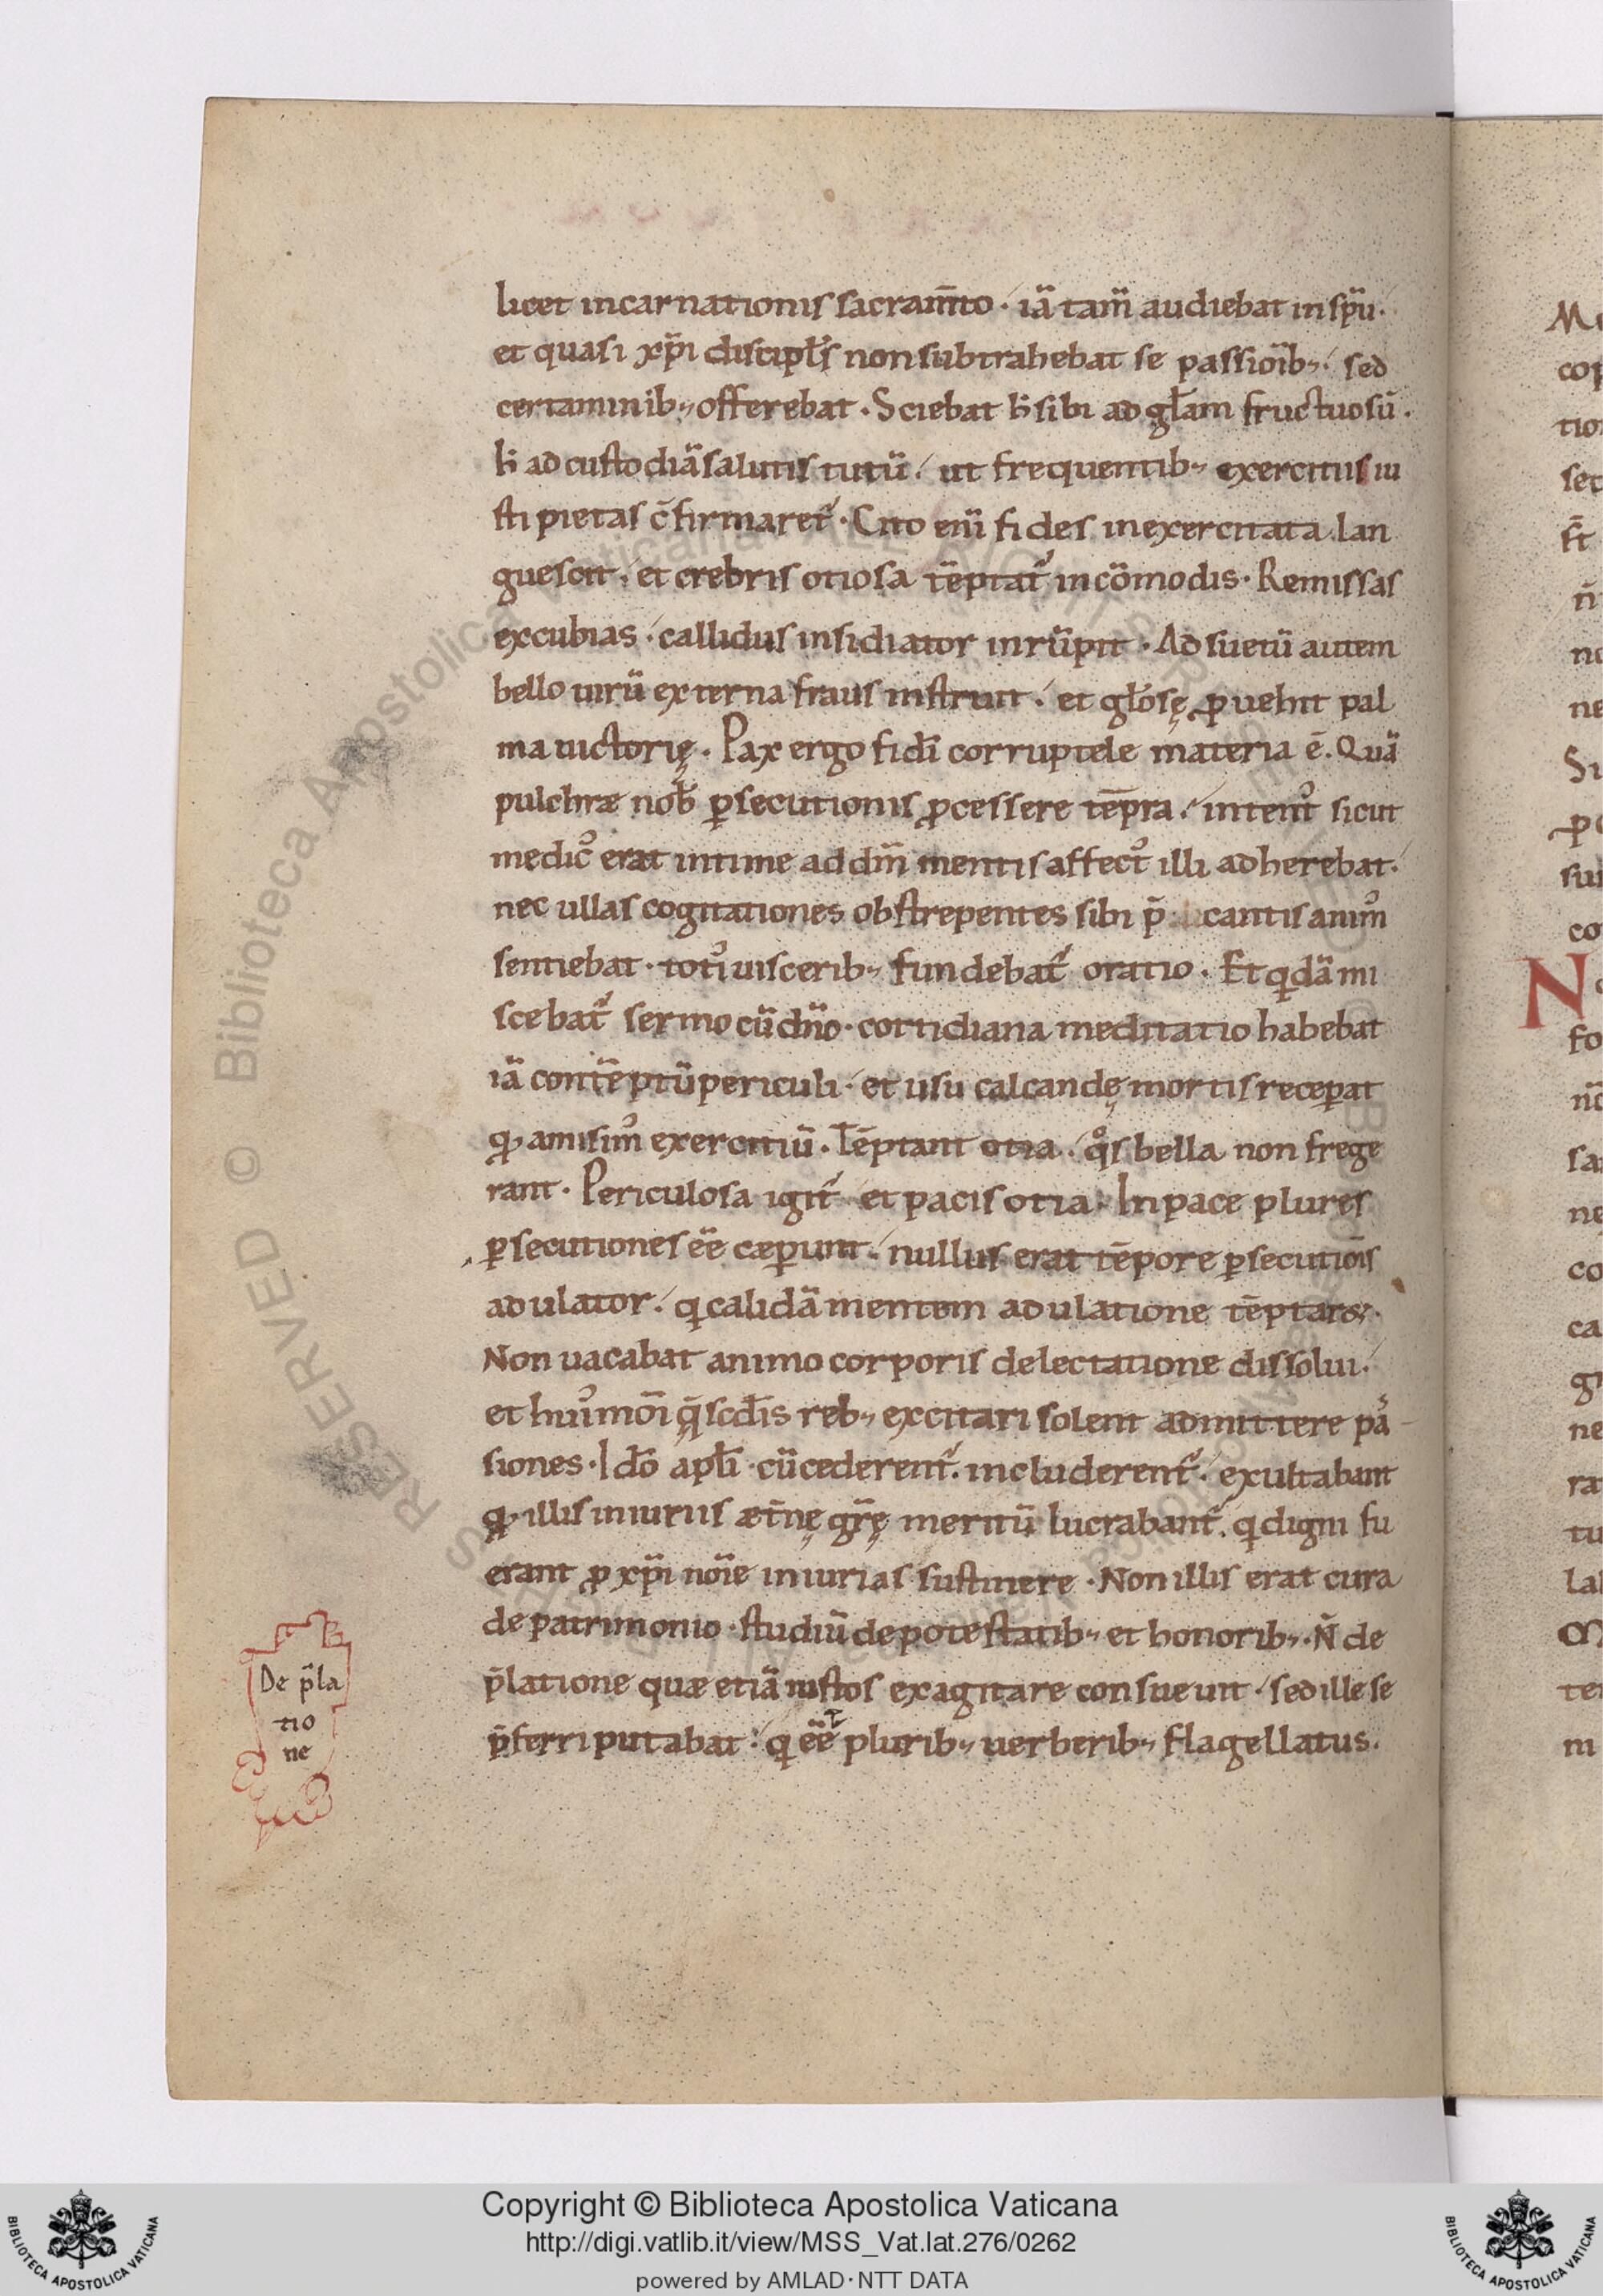 licet incarnationis sacram̄to · iā tam̄ audiebat in sp̄u ·
et quasi xp̄i discipl̄s non subtrahebat se passiōib; sed
certaminib; offerebat · Sciebat h̄ sibi ad gl̄am fructuosū ·
h̄ ad custodiā salutis tutū · ut frequentib; exercitiis iu
sti pietas c̄firmaret᷑ · Cito enī fides inexercitata lan
guescit · et crebris otiosa tēptat᷑ incōmodis · Remissas
excubias · callidus insidiator inrūpit · Adsuetū autem
bello uirū externa fraus instruit · et gl̄osę ꝓuehit pal
ma uictorię · Pax ergo fidī corruptele materia ē · Quā
pulchræ nob̄ ꝑsecutionis ꝓcessere tēpra · intent᷒ sicut
medic᷒ erat intime ad dn̄m mentis affect᷒ illi adherebat ·
nec ullas cogitationes obstrepentes sibi p̄ cantis anim᷒
sentiebat · tot᷒ uiscerib; fundebat᷑ oratio · Et qdā mi
scebat᷑ sermo cū dn̄o · cottidiana meditatio habebat
iā contēptū periculi · et usu calcandę mortis receꝑat
qꝫ amisim᷒ exercitiū · Tēptant otia · qͦs bella non frege
rant · Periculosa igit᷑ et pacis otia · In pace plures
ꝑsecutiones ēē cæꝑunt · nullus erat tēpore ꝑsecutiōis
adulator · q calidā mentem adulatione tēptar&·
Non uacabat animo corporis delectatione dissolui ·
et hui᷒mōi q̄ scdīs reb; excitari solent admittere pas
siones · Idō apl̄i · cū cederent᷑ · includerent᷑ · exultabant
qꝫ illis iniuriis æt̄nę gr̄ę meritū lucrabant᷑ · q digni fu
erant ꝓ xp̄i nōie iniurias sustinere · Non illis erat cura
de patrimonio · studiū de potestatib; et honorib; · N̄ de
p̄latione quæ etiā iustos exagitare consueuit · sed ille se
p̄ferri putabat · q ēēt plurib; uerberib; flagellatus ·
De p̄la
tio
ne
Copyright © Biblioteca Apostolica Vaticana
http://digi.vatlib.it/view/MSS_Vat.lat.276/0262
powered by AMLAD·NTT DATA
BIBLIOTECA APOSTOLICA VATICANA
BIBLIOTECA APOSTOLICA VATICANA